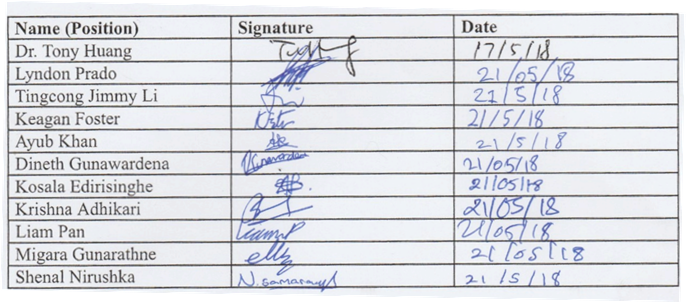 Name (Position) Signature Date
Dr. Tony Huang 17/5/18
Lyndon Prado 21/05/18
Tingcong Jimmy Li 21/5/18
Keagan Foster 21/5/18
Ayub Khan 21/5/18
Dineth Gunawardena 21/05/18
Kosala Edirisinghe 21/05/18
Krishna Adhikari 21/05/18
Liam Pan 21/05/18
Migara Gunarathne 21/05/18
Shenal Nirushka 21/5/18